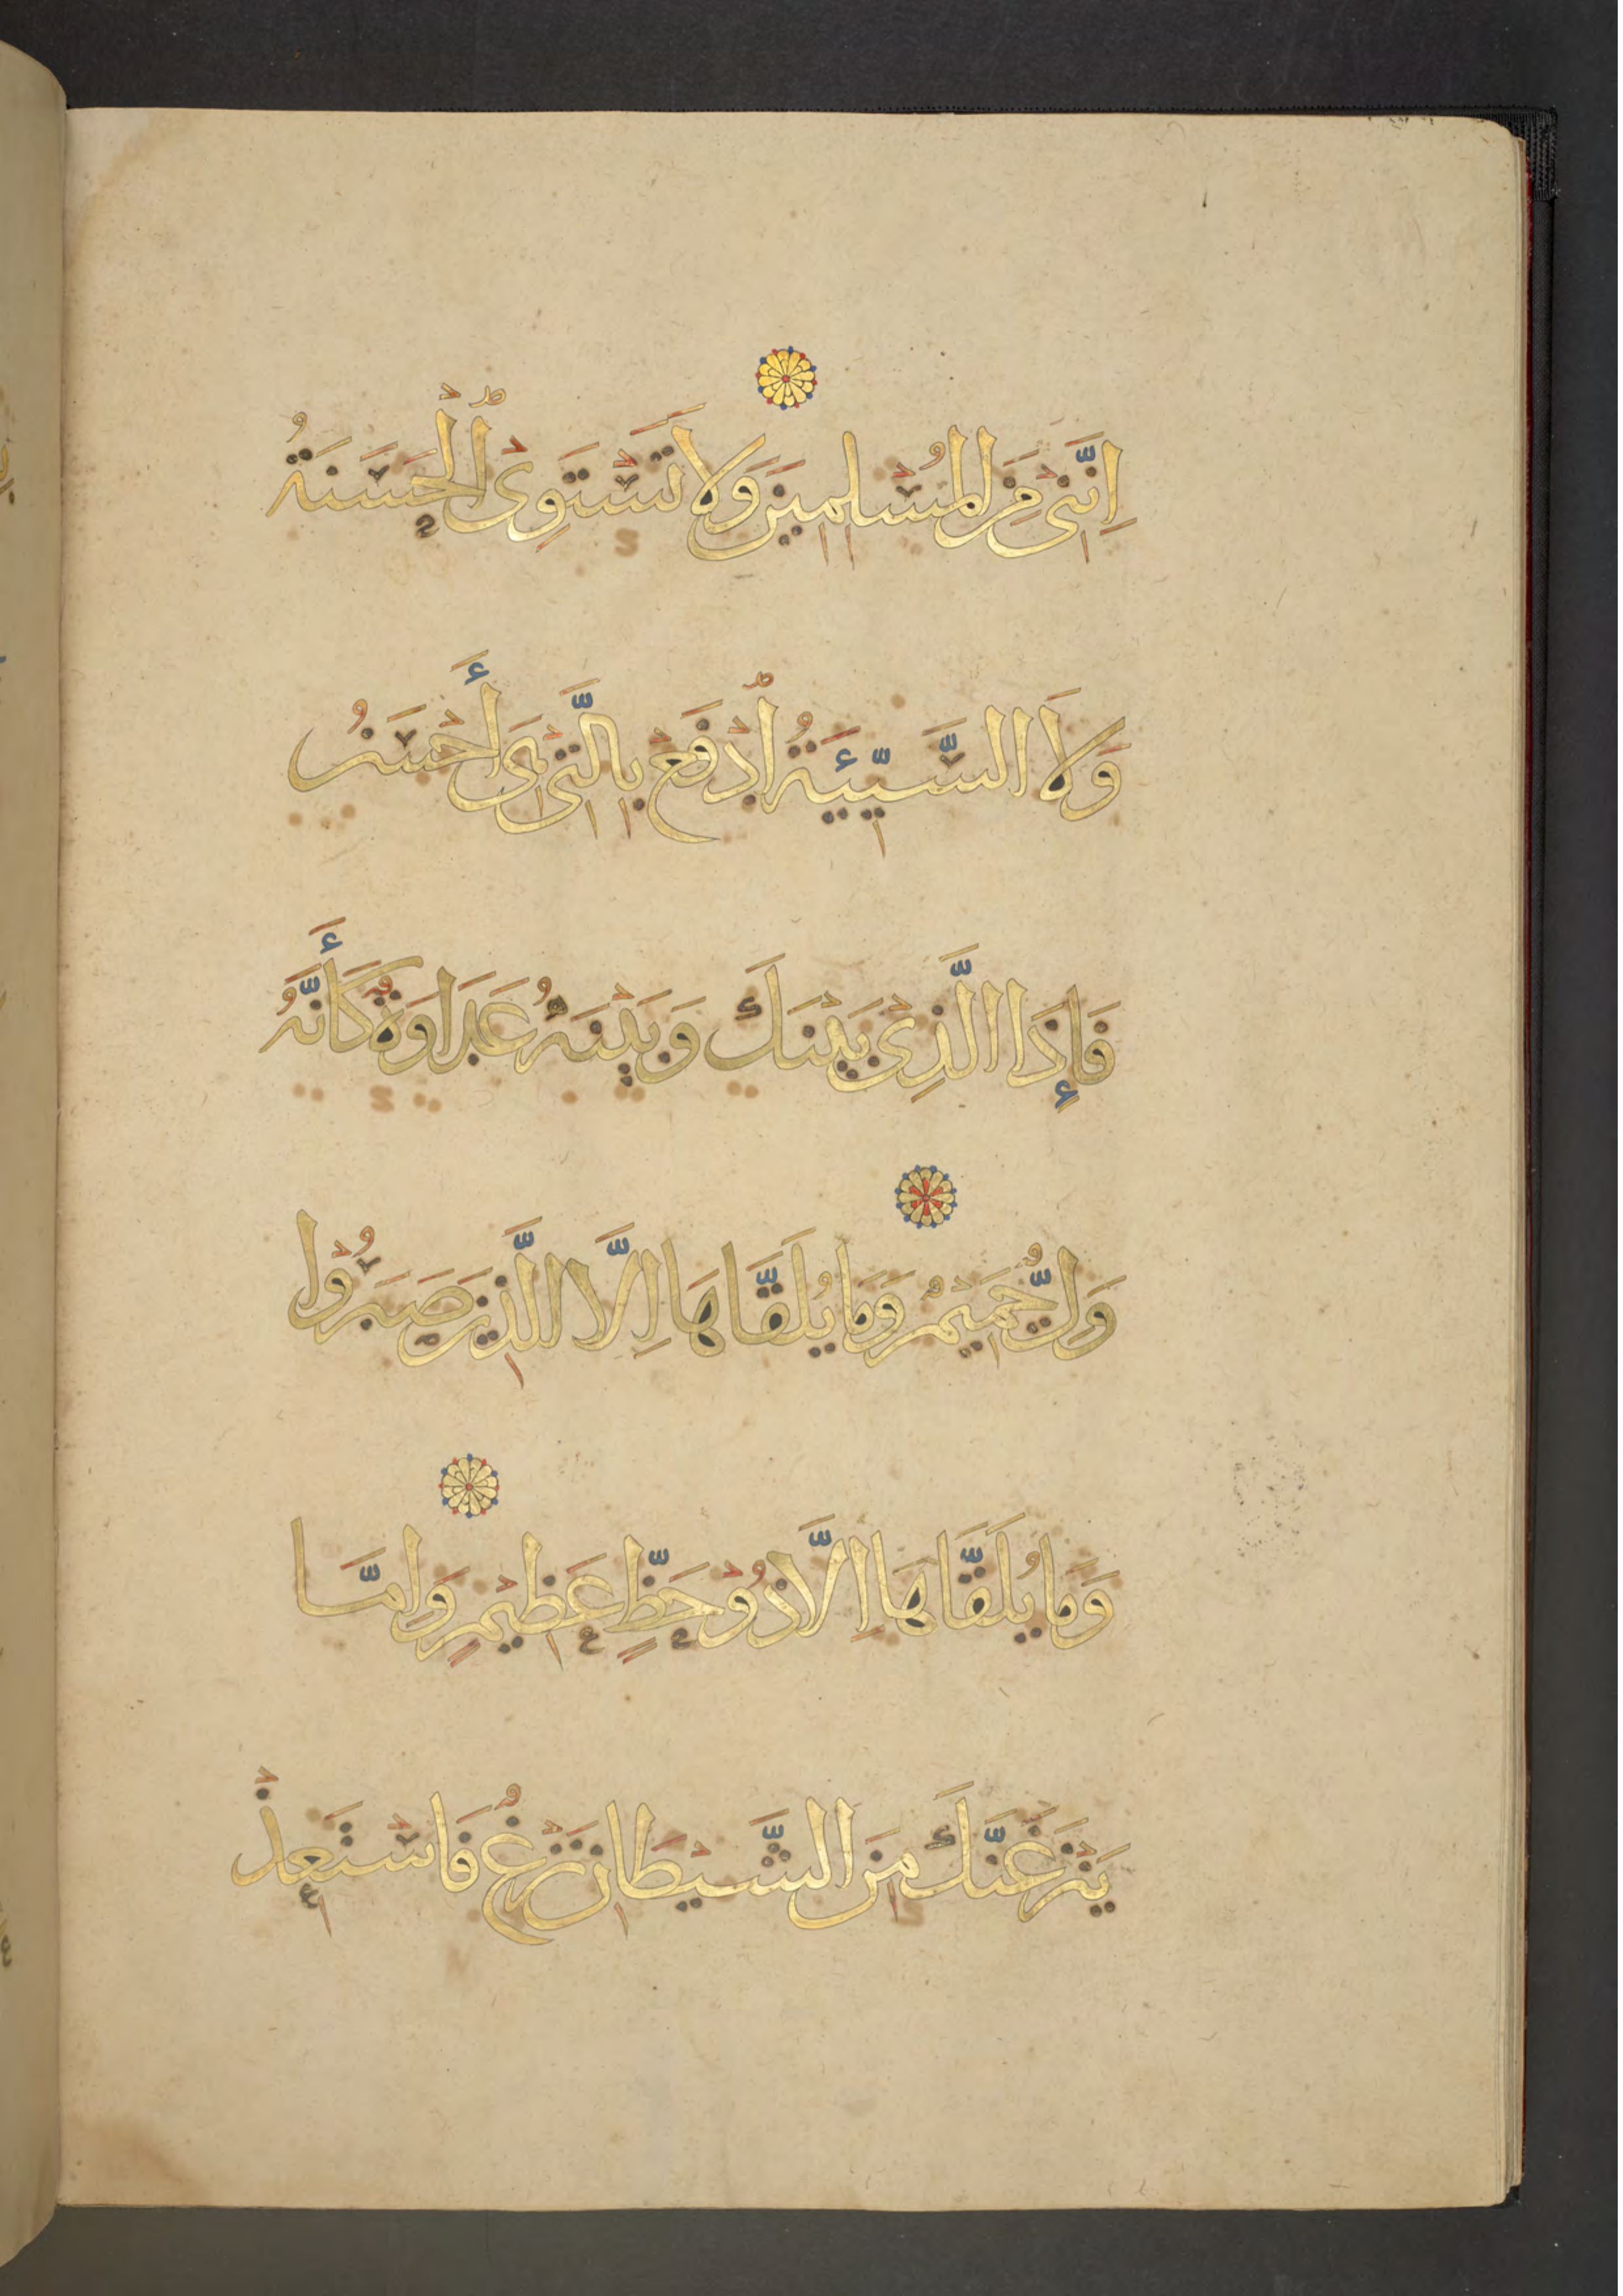 اِنَّنِى مِنَ الْمُسْلِمِينَ وَلَا تَسْتَوِى ٱلْحَسَنَةُ
وَلَا السَّيِّئَةُ ٱدْفَعْ بِالَّتِى هِىَ أَحْسَنُ
فَإِذَا الَّذِى بَيْنَكَ وَبَيْنَهُ عَدَاوَةٌ كَأَنَّهُ
وَلِىٌّ حَمِيمٌ وَمَا يُلَقَّاهَا اِلَّا الَّذِينَ صَبَرُوا
وَمَا يُلَقَّاهَا اِلَّا ذُو حَظٍّ عَظِيمٍ وَاِمَّا
يَنْزَغَنَّكَ مِنَ الشَّيْطَانِ نَزْغٌ فَاسْتَعِذْ